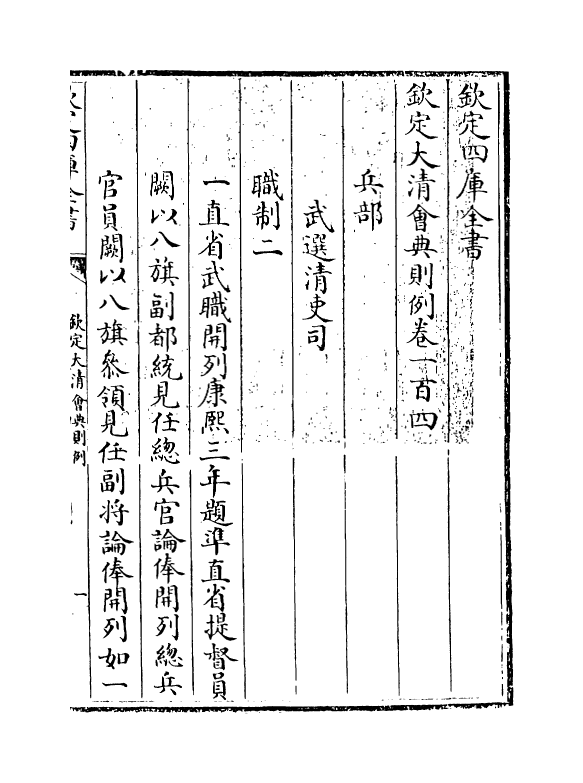 欽定四庫全書
欽定大清會典則例卷一百四
兵部
武選清吏司
職制二
一直省武職開列康熙三年題準直省提督員
闕以八旗副都統見任總兵官論俸開列總兵
官員闕以八旗叅領見任副將論俸開列如一
欽定大清會典則例
一